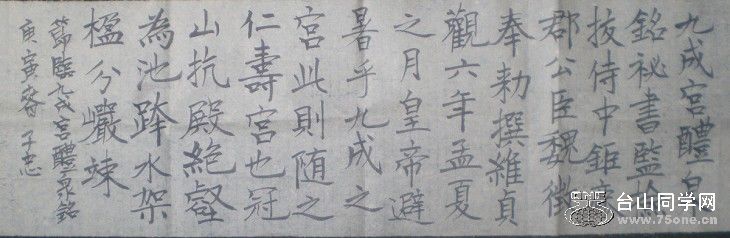 九成宮醴泉
銘祕書監檢
挍侍中鉅
郡公臣魏徵
奉勅撰維貞
觀六年孟夏
之月皇帝避
暑乎九成之
宮此則随之
仁壽宮也冠
山抗殿絶壑
為池跨水架
楹分巖竦
節臨九成宮醴泉銘
庚寅春 子忠
台山同学网
www.75one.cn